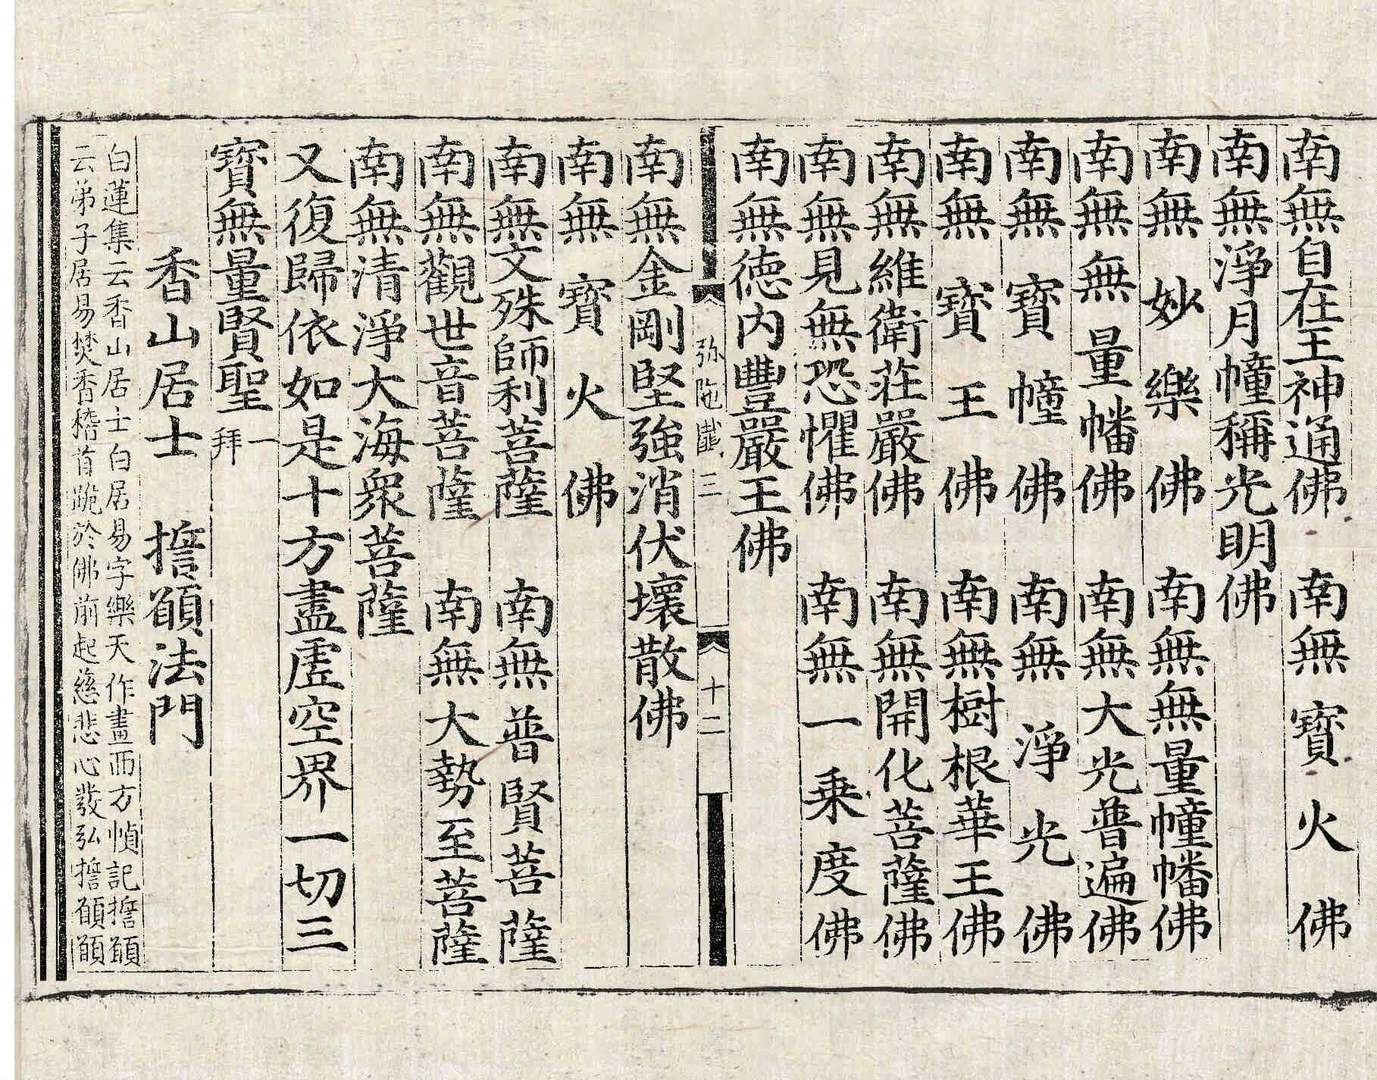 南無自在王神通佛　南無寶火佛
南無淨月幢稱光明佛
南無妙樂佛　南無無量幢幡佛
南無無量幡佛　南無大光普遍佛
南無寶幢佛　南無淨光佛
南無寶王佛　南無樹根華王佛
南無維衛莊嚴佛　南無開化菩薩佛
南無見無恐懼佛　南無一乗度佛
南無德內豐嚴王佛
弥陁懺三　十二
南無金剛堅強消伏壞散佛
南無寶火佛
南無文殊師利菩薩　南無普賢菩薩
南無觀世音菩薩　南無大勢至菩薩
南無清淨大海衆菩薩
又復歸依如是十方盡虛空界一切三
寶無量賢聖一拜
香山居士　誓願法門
白蓮集云香山居士白居易字樂天作畫西方幀記誓願
云弟子居易焚香稽首跪於佛前起慈悲心發弘誓願願